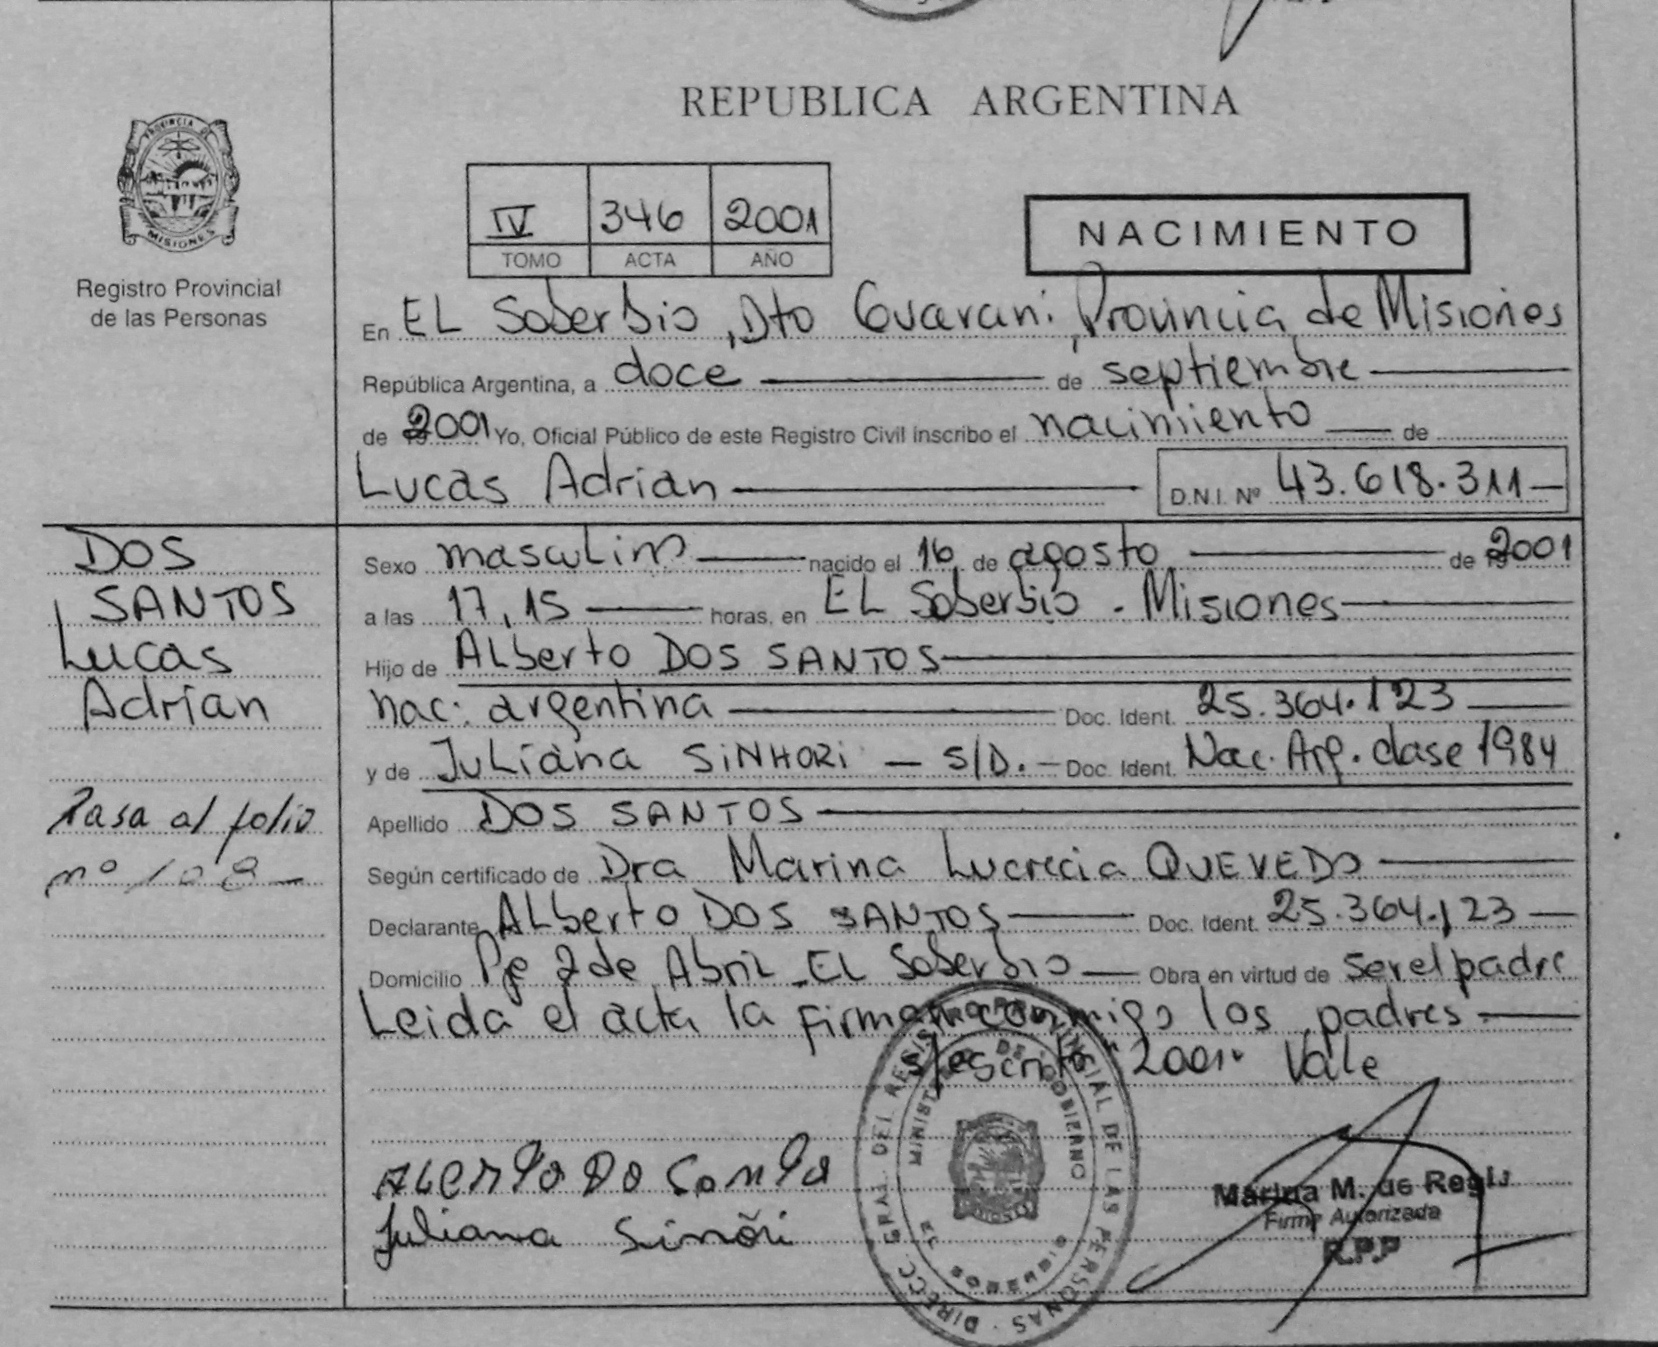 REPUBLICA ARGENTINA
PROVINCIA DE
MISIONES
Registro Provincial
de las Personas
IV 346 2001
TOMO ACTA AÑO
NACIMIENTO
En EL Soberbio, Dto Guarani Provincia de Misiones
República Argentina, a doce de septiembre
de 2001 Yo, Oficial Público de este Registro Civil inscribo el nacimiento de
Lucas Adrian D.N.I. Nº 43.618.311
DOS
SANTOS
Lucas
Adrian
Pasa al folio
nº 108
Sexo masculino nacido el 16 de agosto de 2001
a las 17,15 horas, en EL Soberbio - Misiones
Hijo de ALberto DOS SANTOS
nac. argentina Doc. Ident. 25.364.123
y de JuLiana SiNHORi - S/D. - Doc. Ident. Nac. Arg. clase 1984
Apellido DOS SANTOS
Según certificado de Dra Marina Lucrecia QUEVEDO
Declarante ALberto DOS SANTOS Doc. Ident. 25.364.123
Domicilio 2 de AbriL - EL Soberbio Obra en virtud de ser el padre
Leida el acta la firman conmigo los padres
s/escrito "2001" Vale
ALberto Do Santo
Juliana Sinõri
DIRECC. GRAL. DEL REGISTRO PROVINCIAL DE LAS PERSONAS
MINISTERIO DE GOBIERNO
MISIONES
Marina M. de Regij
Firma Autorizada
R.P.P